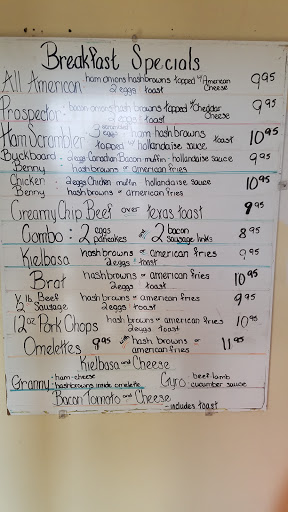 Breakfast Specials
All American ham onions hashbrowns topped w/ American Cheese 9.95
2 eggs toast
Prospector - bacon onions hash browns topped w/ Cheddar Cheese 9.95
2 eggs toast
Ham Scrambler 3 scrambled eggs ham hashbrowns toast 10.95
topped w/ hollandaise sauce
Buckboard - 2 eggs Canadian Bacon muffin - hollandaise sauce 9.95
Benny hash browns or american fries
Chicken - 2 eggs Chicken muffin hollandaise sauce 10.95
Benny hash browns or american fries
Creamy Chip Beef over Texas toast 9.95
Combo: 2 eggs 2 pancakes 2 bacon 2 sausage links 8.95
Kielbasa hash browns or american fries 9.95
2 eggs toast
Brat hash browns or american fries 10.95
2 eggs toast
1/2 lb Beef Sausage hash browns or american fries 9.95
2 eggs toast
12 oz Pork Chops hash browns or american fries 10.95
2 eggs toast
Omelettes 9.95 hash browns or american fries 11.95
Kielbasa and Cheese
Granny - ham-cheese hashbrowns inside omelette Gyro beef lamb cucumber sauce
Bacon Tomato and Cheese
- includes toast